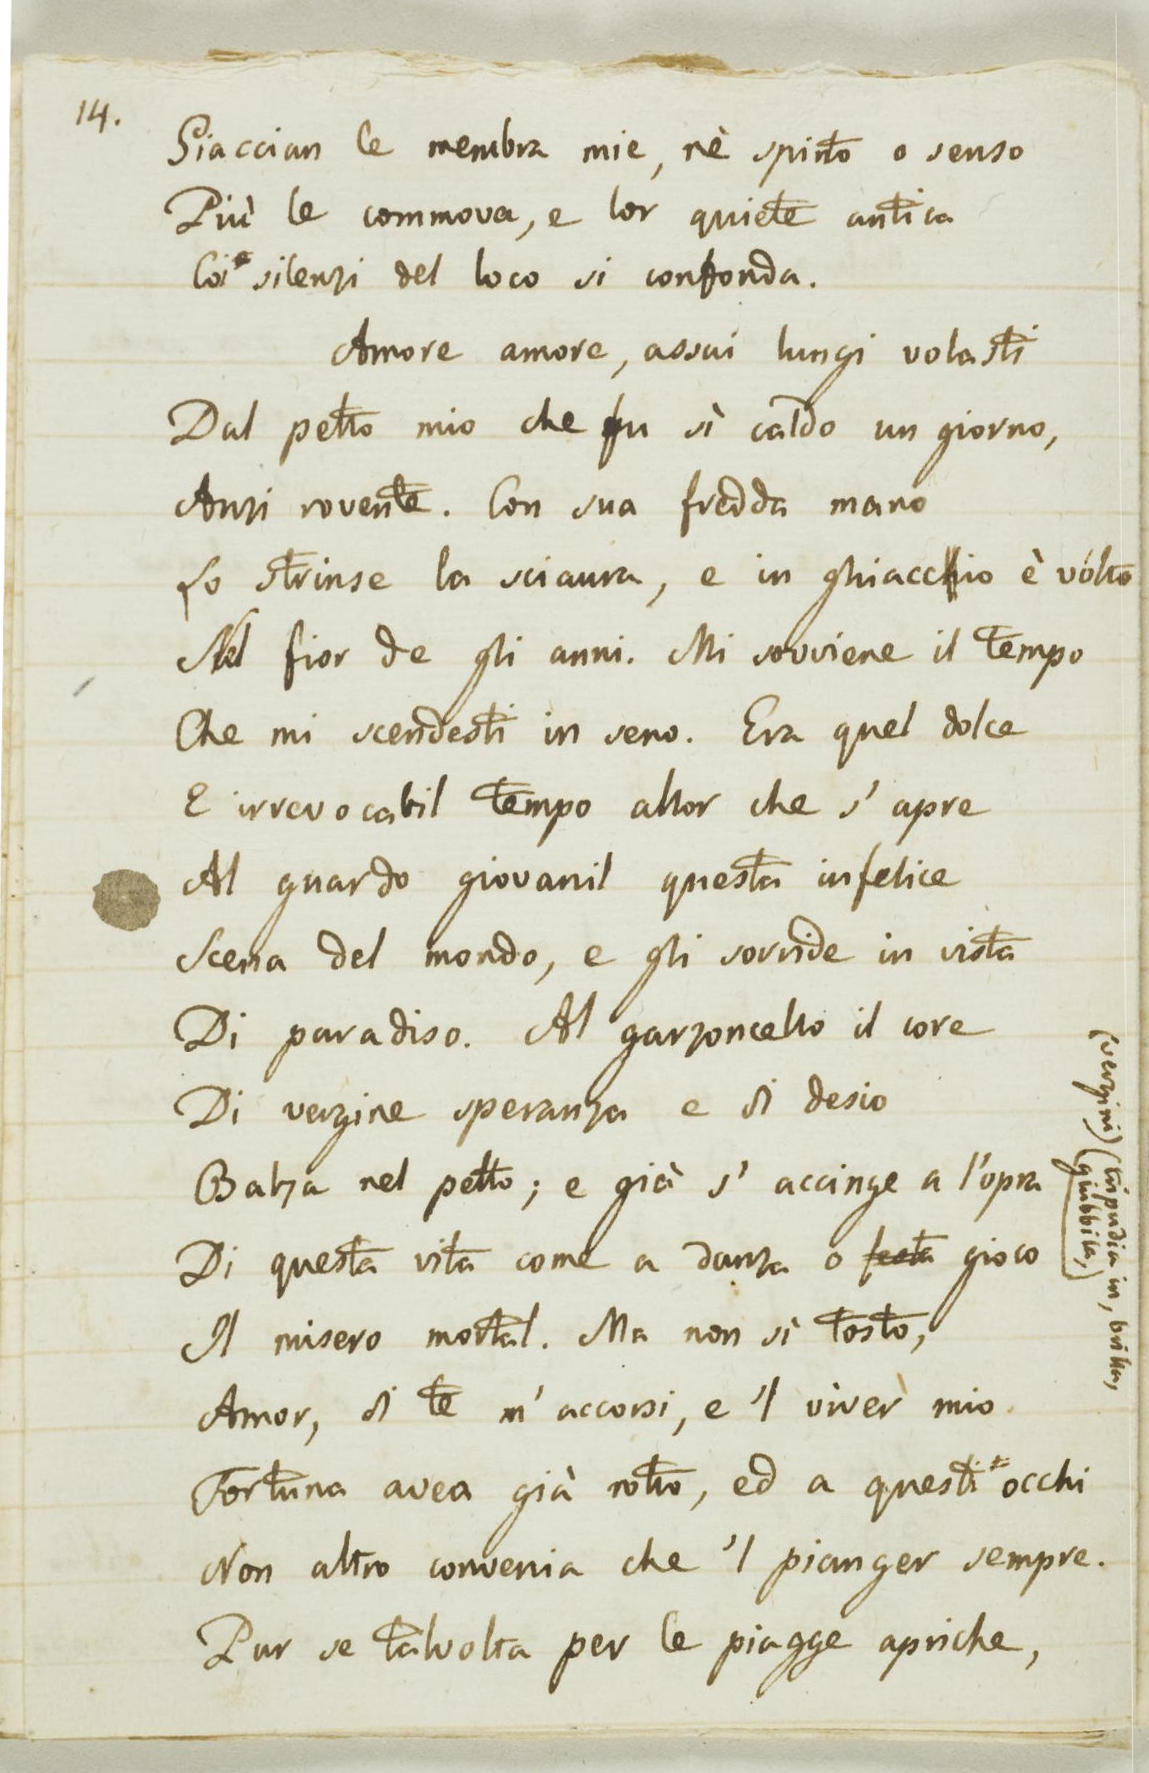 14.
Giaccian le membra mie, nè spirto o senso
Più le commova, e lor quiete antica
Coi silenzi del loco si confonda.
Amore amore, assai lungi volasti
Dal petto mio che fu sì caldo un giorno,
Anzi rovente. Con sua fredda mano
Lo strinse la sciaura, e in ghiaccio è vólto
Nel fior de gli anni. Mi sovviene il tempo
Che mi scendesti in seno. Era quel dolce
E irrevocabil tempo allor che s' apre
Al guardo giovanil questa infelice
Scena del mondo, e gli sorride in vista
Di paradiso. Al garzoncello il core
Di vergine speranza e di desio
Balza nel petto; e già s' accinge a l'opra
Di questa vita come a danza o festa gioco
Il misero mortal. Ma non sì tosto,
Amor, di te m' accorsi, e 'l viver mio
Fortuna avea già rotto, ed a questi occhi
Non altro convenia che 'l pianger sempre.
Pur se talvolta per le piagge apriche,
(vergini) (tripudia in, brilla,
giubbila,)